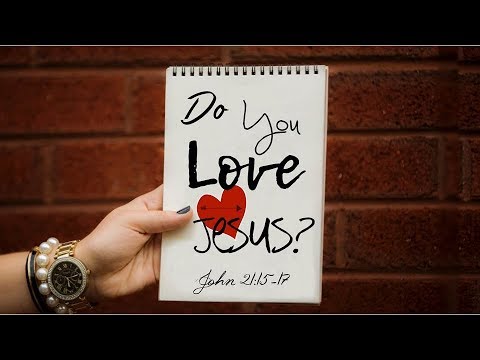 Do You
Love
Jesus?
John 21:15-17